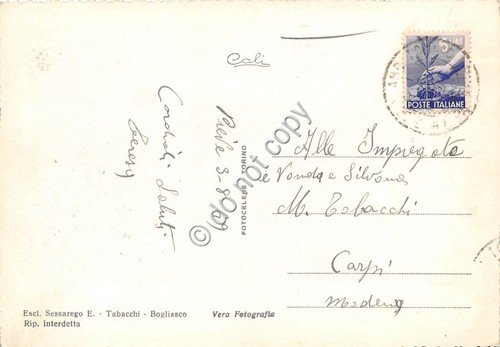 Cali
Pieve 3-8-49
Cordiali Saluti
Teresa
FOTOCELERE TORINO
5 LIRE
POSTE ITALIANE
Alle Impiegate
e Vanda e Silvana
M. Tabacchi
Carpi
Modena
Escl. Sessarego E. - Tabacchi - Bogliasco
Rip. interdetta
Vera Fotografia
© do not copy